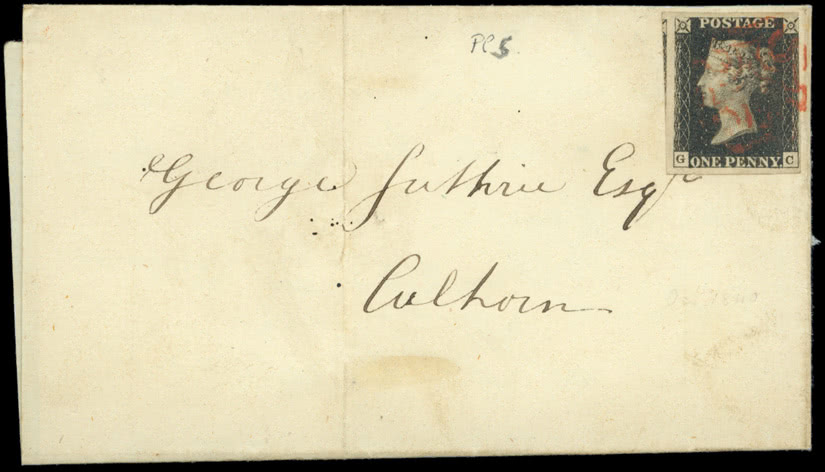 Pl 5
POSTAGE
G ONE PENNY C
George Guthrie Esqre
Culhorn